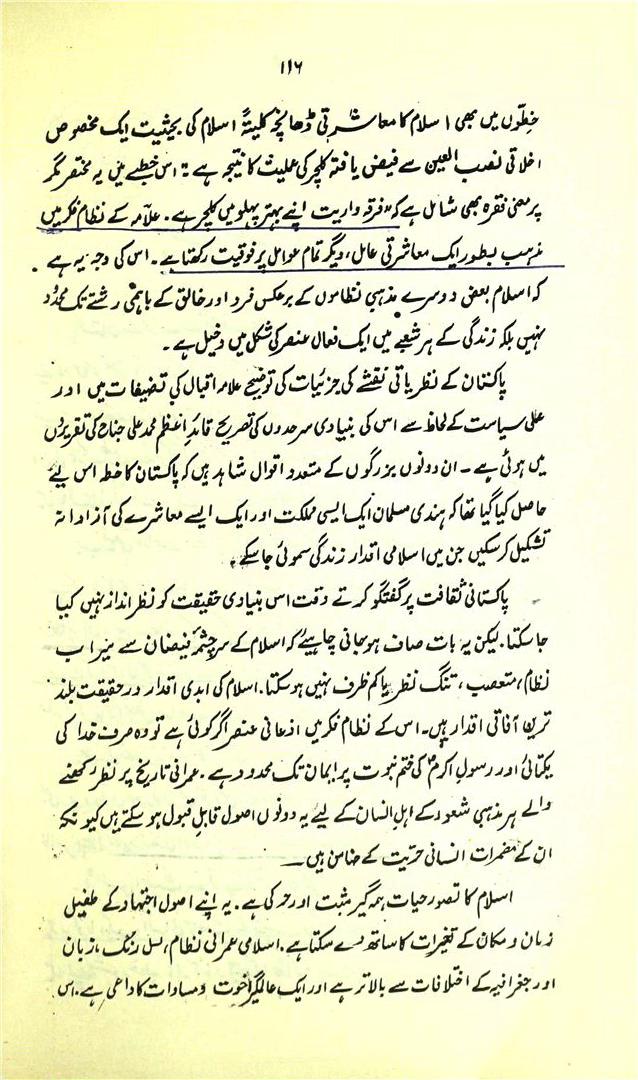 ۱۱۶
خطّوں میں بھی اسلام کا معاشرتی ڈھانچہ کلیتہً اسلام کی بحیثیت ایک مخصوص
اخلاقی نصب العین سے فیض یافتہ کلچر کی عملیت کا نتیجہ ہے" اس خطبے میں یہ مختصر مگر
پر معنی فقرہ بھی شامل ہے کہ "فرقہ واریت اپنے بہتر پہلو میں کلچر ہے۔ علامہ کے نظام فکر میں
مذہب بطور ایک معاشرتی عامل، دیگر تمام عوامل پر فوقیت رکھتا ہے۔ اس کی وجہ یہ ہے
کہ اسلام بعض دوسرے مذہبی نظاموں کے برعکس فرد اور خالق کے باہمی رشتے تک محدود
نہیں بلکہ زندگی کے ہر شعبے میں ایک فعال عنصر کی شکل میں دخیل ہے۔
پاکستان کے نظریاتی نقشے کی جزئیات کی توضیح علامہ اقبال کی تصنیفات میں اور
عملی سیاست کے لحاظ سے اس کی بنیادی سرحدوں کی تصریح قائد اعظم محمد علی جناح کی تقریروں
میں ہوئی ہے۔ ان دونوں بزرگوں کے متعدد اقوال شاہد ہیں کہ پاکستان کا خطہ اس لیے
حاصل کیا گیا تھا کہ ہندی مسلمان ایک ایسی مملکت اور ایک ایسے معاشرے کی آزادانہ
تشکیل کر سکیں جن میں اسلامی اقدار زندگی سموئی جا سکے۔
پاکستانی ثقافت پر گفتگو کرتے وقت اس بنیادی حقیقت کو نظر انداز نہیں کیا
جا سکتا۔ لیکن یہ بات صاف ہو جانی چاہیئے کہ اسلام کے سرچشمۂ فیضان سے سیراب
نظام، متعصب، تنگ نظر یا کم ظرف نہیں ہو سکتا۔ اسلام کی ابدی اقدار در حقیقت بلند
ترین آفاقی اقدار ہیں۔ اس کے نظام فکر میں اذعانی عنصر اگر کوئی ہے تو وہ صرف خدا کی
یکتائی اور رسول اکرمؐ کی ختم نبوت پر ایمان تک محدود ہے۔ عمرانی تاریخ پر نظر رکھنے
والے ہر مذہبی شعور کے اہل انسان کے لیے یہ دونوں اصول قابلِ قبول ہو سکتے ہیں کیونکہ
ان کے مضمرات انسانی حرّیت کے ضامن ہیں۔
اسلام کا تصور حیات ہمہ گیر مثبت اور حرکی ہے۔ یہ اپنے اصول اجتہاد کے طفیل
زمان و مکان کے تغیرات کا ساتھ دے سکتا ہے۔ اسلامی عمرانی نظام، نسل رنگ، زبان
اور جغرافیہ کے اختلافات سے بالاتر ہے اور ایک عالمگیر اخوت و مساوات کا داعی ہے۔ اس